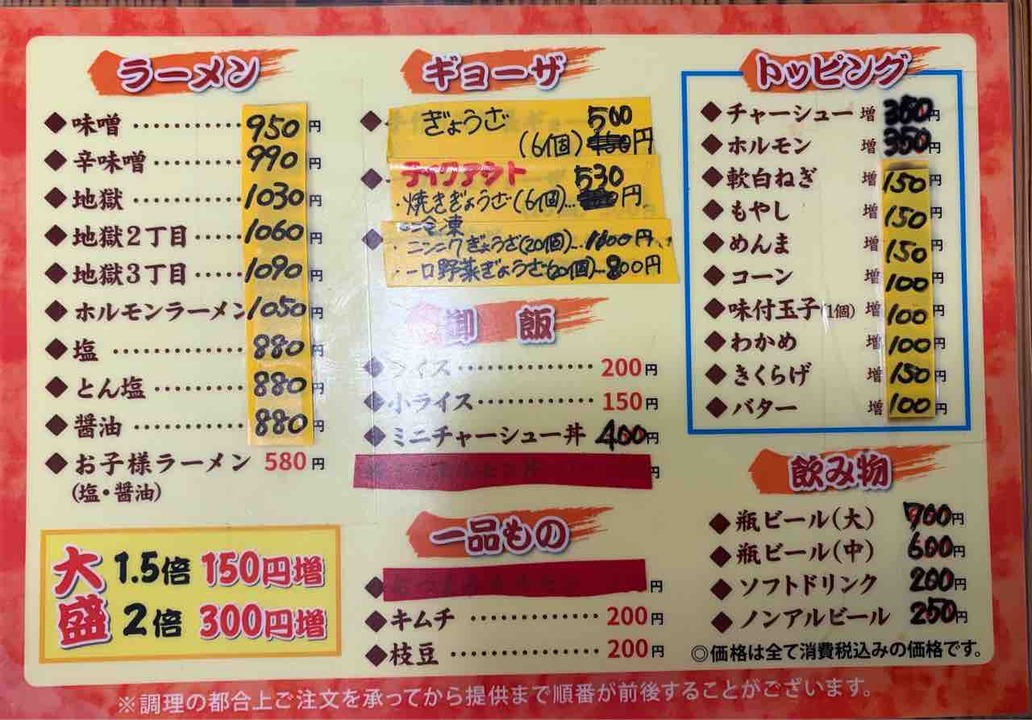 ラーメン
◆味噌 ………… 950円
◆辛味噌 ……… 990円
◆地獄 ………… 1030円
◆地獄2丁目 …… 1060円
◆地獄3丁目 …… 1090円
◆ホルモンラーメン 1050円
◆塩 …………… 880円
◆とん塩 ……… 880円
◆醤油 ………… 880円
◆お子様ラーメン 580円
(塩・醤油)
大盛
1.5倍 150円増
2倍 300円増
ギョーザ
◆ぎょうざ 500
(6個) 円
◆テイクアウト 530
・焼きぎょうざ(6個)… 円
◆・冷凍
・ニンニクぎょうざ(20個)… 1600円
・一口野菜ぎょうざ(20個)… 800円
御飯
◆ライス ………… 200円
◆小ライス ……… 150円
◆ミニチャーシュー丼 400円
円
一品もの
◆ 円
◆キムチ ………… 200円
◆枝豆 …………… 200円
トッピング
◆チャーシュー 増
◆ホルモン 増 350
◆軟白ねぎ 増 150円
◆もやし 増 150円
◆めんま 増 150円
◆コーン 増 100円
◆味付玉子(1個) 増 100円
◆わかめ 増 100円
◆きくらげ 増 150円
◆バター 増 100円
飲み物
◆瓶ビール(大) 700円
◆瓶ビール(中) 600円
◆ソフトドリンク 200円
◆ノンアルビール 250円
◎価格は全て消費税込みの価格です。
※調理の都合上ご注文を承ってから提供まで順番が前後することがございます。